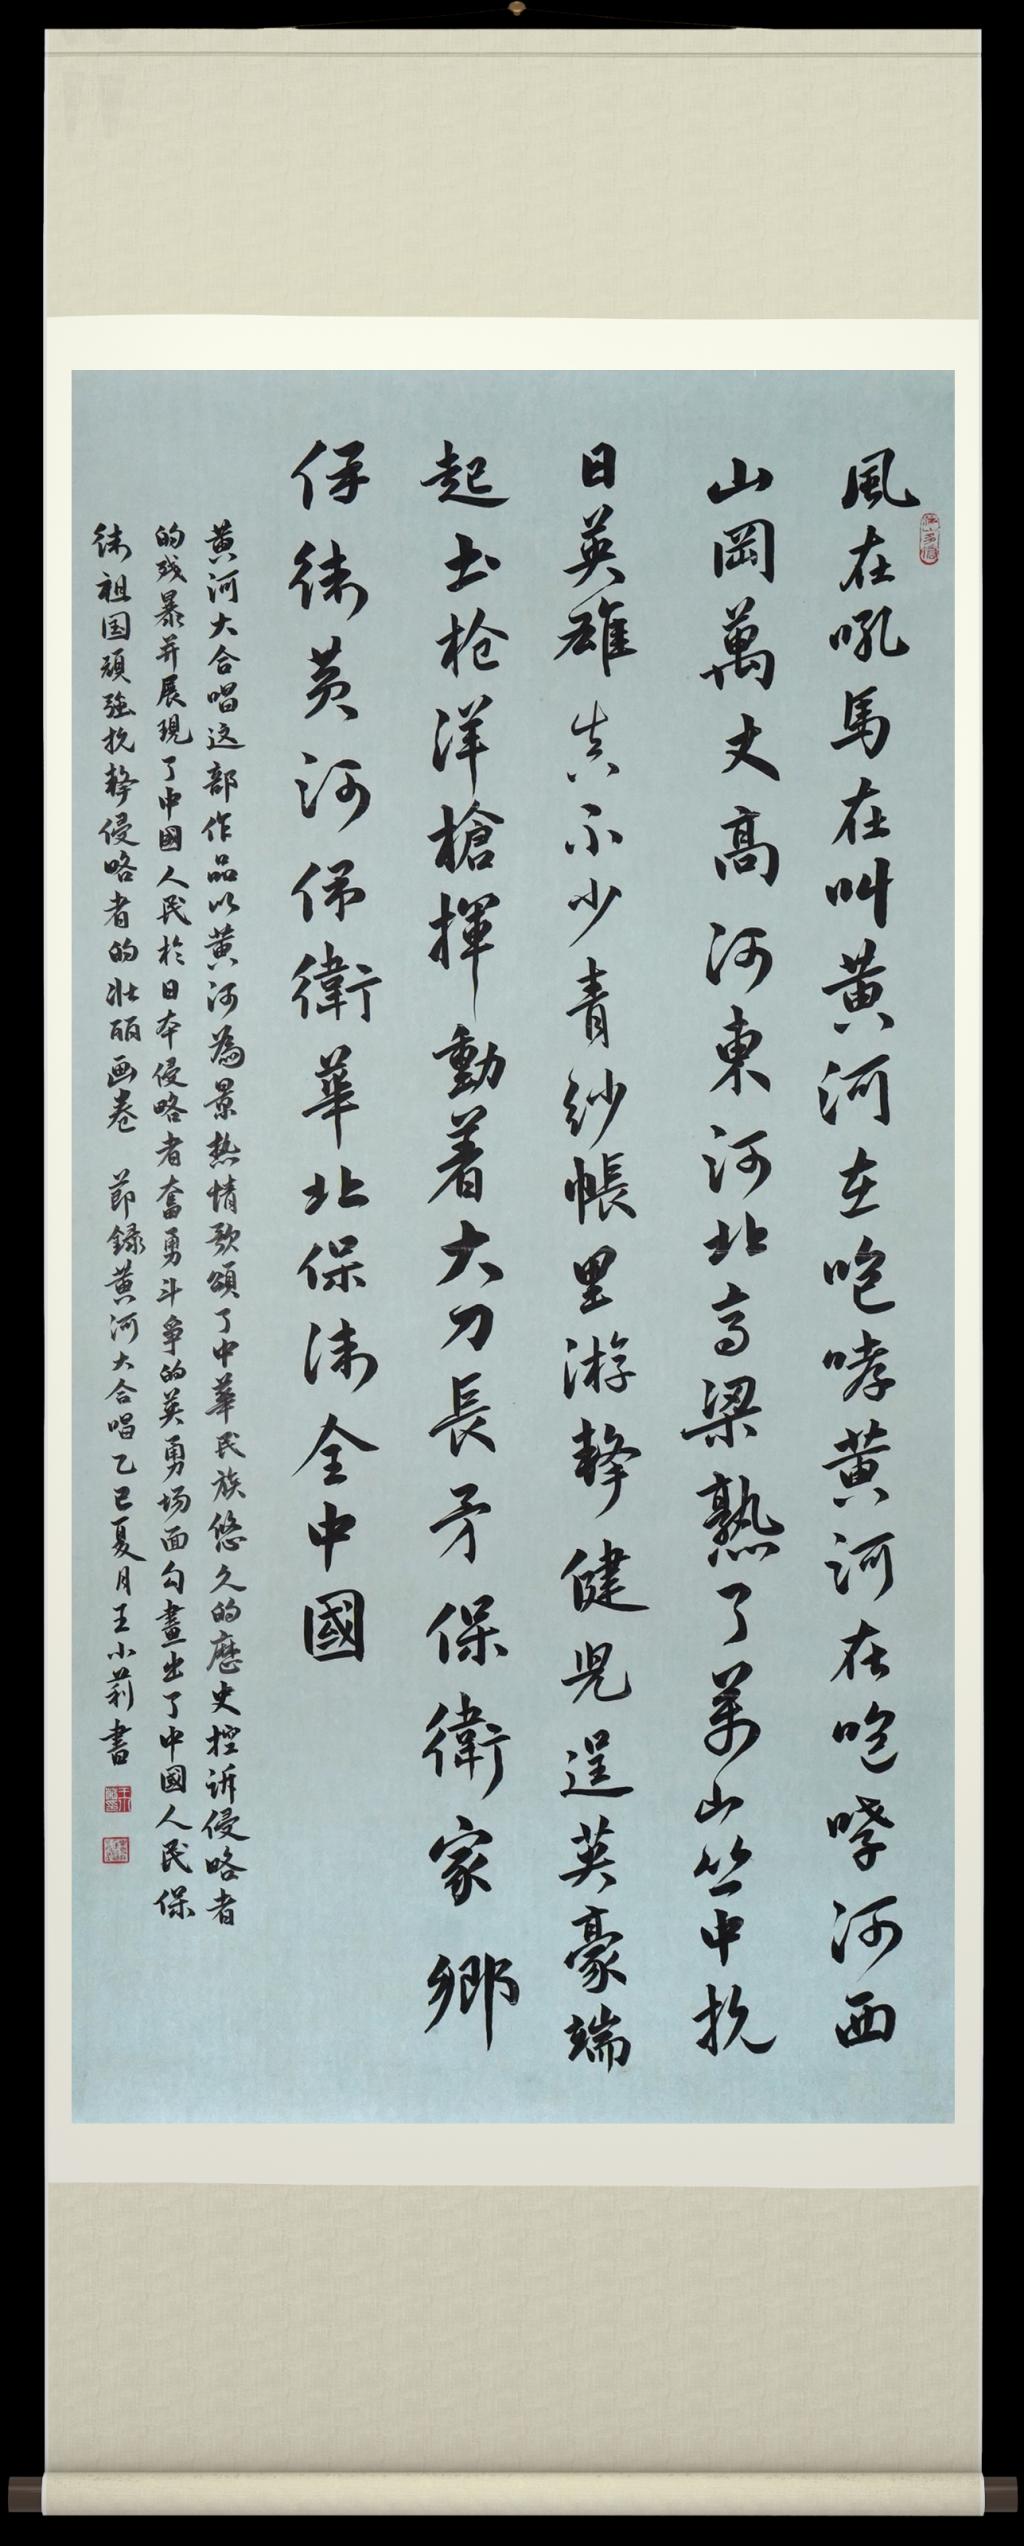 風在吼馬在叫黃河在咆哮黃河在咆哮河西
山岡萬丈高河東河北高梁熟了萬山丛中抗
日英雄真不少青紗帳里游擊健児逞英豪端
起土枪洋槍揮動着大刀長矛保衛家鄉
保衛黃河保衛華北保衛全中國
黄河大合唱这部作品以黄河為景热情歌頌了中華民族悠久的歷史控诉侵略者
的残暴并展現了中國人民於日本侵略者奮勇斗争的英勇场面勾畫出了中國人民保
衛祖国頑強抗擊侵略者的壮丽画卷 節録黄河大合唱乙巳夏月王小莉書